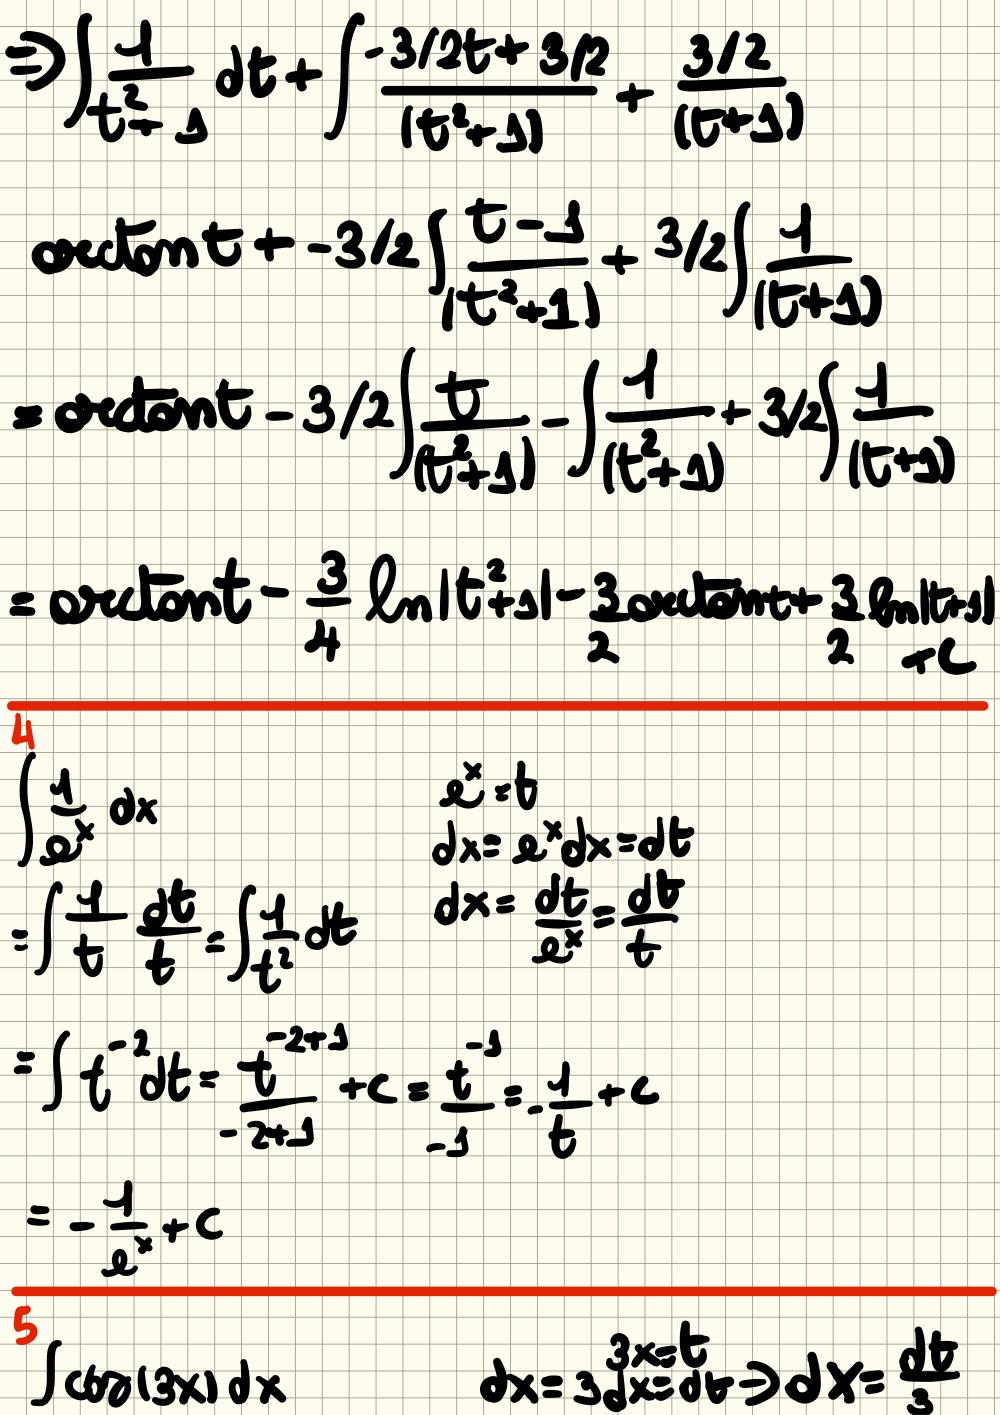 ⇒ ∫ 1/(t²+1) dt + ∫ (-3/2t + 3/2)/(t²+1) + (3/2)/(t+1)
arctan t + -3/2 ∫ (t-1)/(t²+1) + 3/2 ∫ 1/(t+1)
= arctan t - 3/2 ∫ t/(t²+1) - ∫ 1/(t²+1) + 3/2 ∫ 1/(t+1)
= arctan t - 3/4 ln|t²+1| - 3/2 arctan t + 3/2 ln|t+1|
+c
4
∫ 1/eˣ dx
eˣ = t
dx = eˣdx = dt
= ∫ 1/t dt/t = ∫ 1/t² dt
dx = dt/eˣ = dt/t
= ∫ t⁻² dt = t⁻²⁺¹/(-2+1) + c = t⁻¹/-1 = -1/t + c
= -1/eˣ + c
5
∫ cos(3x) dx
3x = t
dx = 3dx = dt → dx = dt/3